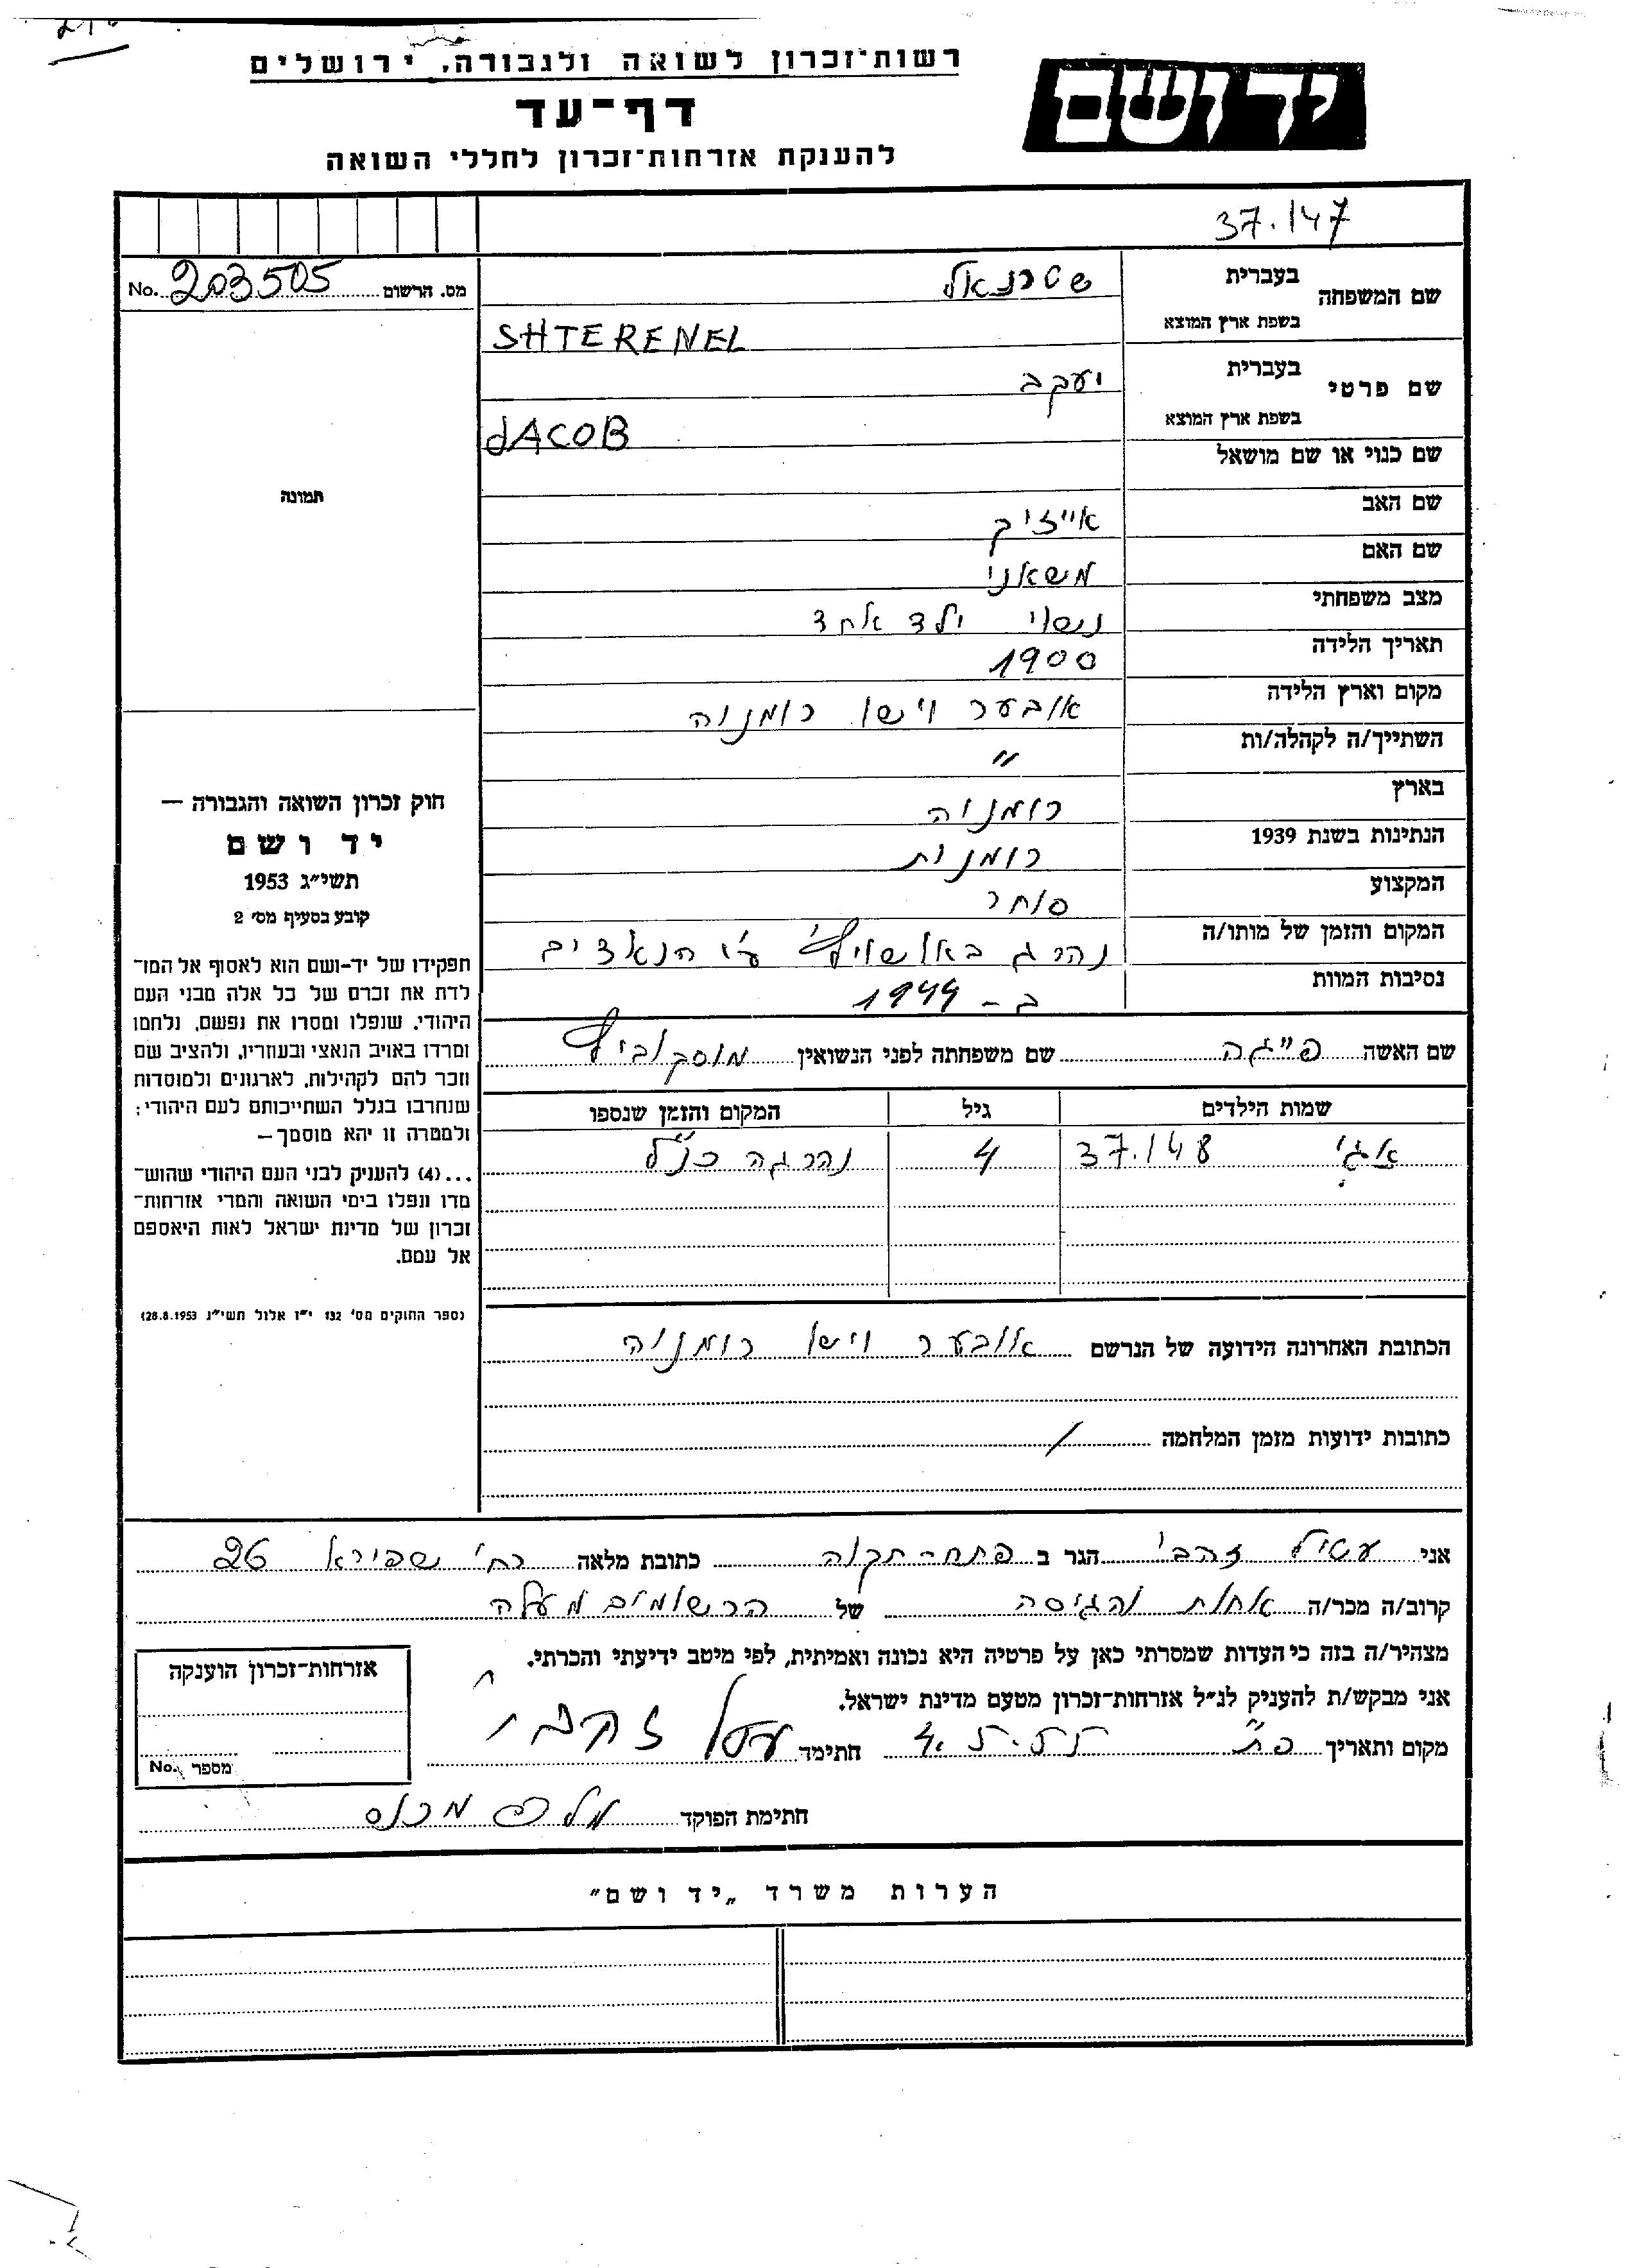 רשות־זכרון לשואה ולגבורה, ירושלים
דף-עד
להענקת אזרחות־זכרון לחללי השואה
יד ושם
37.147
מס. הרשום 203505 No.
שם המשפחה בעברית שטרנאל
בשפת ארץ המוצא SHTERENEL
שם פרטי בעברית יעקב
בשפת ארץ המוצא JACOB
שם כנוי או שם מושאל
שם האב אייזיק
שם האם
מצב משפחתי נשוי ילד אחד
תאריך הלידה 1900
מקום וארץ הלידה אובער וישו רומניה
השתייך/ה לקהלה/ות "
בארץ רומניה
הנתינות בשנת 1939 רומנית
המקצוע סוחר
המקום והזמן של מותו/ה נהרג באושויץ ע"י הנאצים
נסיבות המוות ב- 1944
שם האשה פייגה שם משפחתה לפני הנשואין מוסקוביץ
שמות הילדים גיל המקום והזמן שנספו
אגי 37.148 4 נהרגה כנ"ל
הכתובת האחרונה הידועה של הנרשם אובער וישו רומניה
כתובות ידועות מזמן המלחמה /
תמונה
חוק זכרון השואה והגבורה —
יד ושם
תשי״ג 1953
קובע בסעיף מס׳ 2
תפקידו של יד-ושם הוא לאסוף אל המו־
לדת את זכרם של כל אלה מבני העם
היהודי, שנפלו ומסרו את נפשם, נלחמו
ומרדו באויב הנאצי ובעוזריו, ולהציב שם
וזכר להם לקהילות, לארגונים ולמוסדות
שנחרבו בגלל השתייכותם לעם היהודי;
ולמטרה זו יהא מוסמך—
...(4) להעניק לבני העם היהודי שהוש־
מדו ונפלו בימי השואה והמרי אזרחות־
זכרון של מדינת ישראל לאות היאספם
אל עמם.
(ספר החוקים מס׳ 132 י״ז אלול תשי״ג 28.8.1953)
אני זהבי הגר ב פתח-תקוה כתובת מלאה רח' שפירא 26
קרוב/ה מכר/ה אחות והגיסה של הרשומים מעלה
מצהיר/ה בזה כי העדות שמסרתי כאן על פרטיה היא נכונה ואמיתית, לפי מיטב ידיעתי והכרתי.
אני מבקש/ת להעניק לנ״ל אזרחות־זכרון מטעם מדינת ישראל.
מקום ותאריך פ"ת חתימה זהבי
אזרחות־זכרון הוענקה
מספר No.
חתימת הפוקד
הערות משרד „יד ושם״